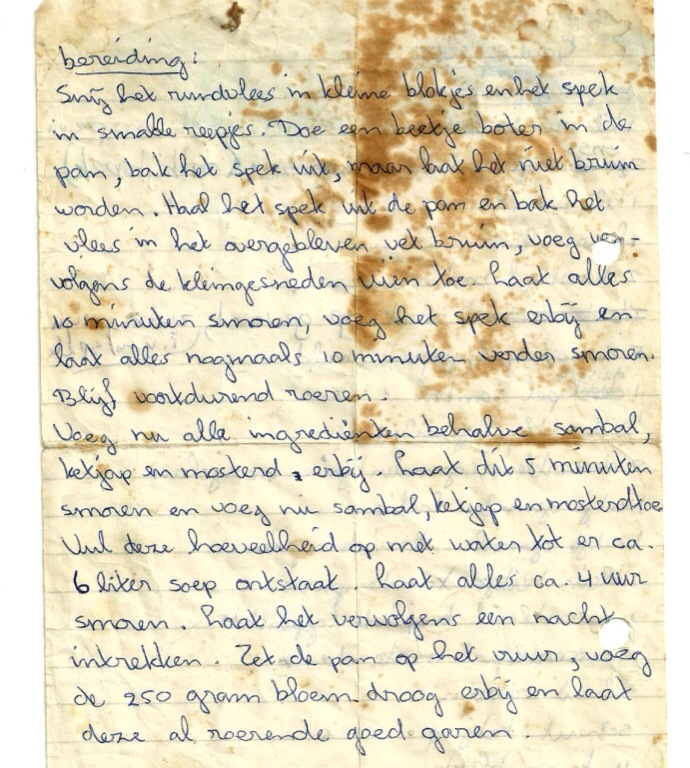 bereiding:
Snij het rundvlees in kleine blokjes en het spek
in smalle reepjes. Doe een beetje boter in de
pan, bak het spek uit, maar laat het niet bruin
worden. Haal het spek uit de pan en bak het
vlees in het overgebleven vet bruin, voeg ver-
volgens de kleingesneden uien toe. Laat alles
10 minuten smoren, voeg het spek erbij en
laat alles nogmaals 10 minuten verder smoren.
Blijf voortdurend roeren.
Voeg nu alle ingrediënten behalve sambal,
ketjap en mosterd, erbij. Laat dit 5 minuten
smoren en voeg nu sambal, ketjap en mosterd toe
Vul deze hoeveelheid op met water tot er ca.
6 liter soep ontstaat. Laat alles ca. 4 uur
smoren. Laat het vervolgens een nacht
intrekken. Zet de pan op het vuur, voeg
de 250 gram bloem droog erbij en laat
deze al roerende goed garen.